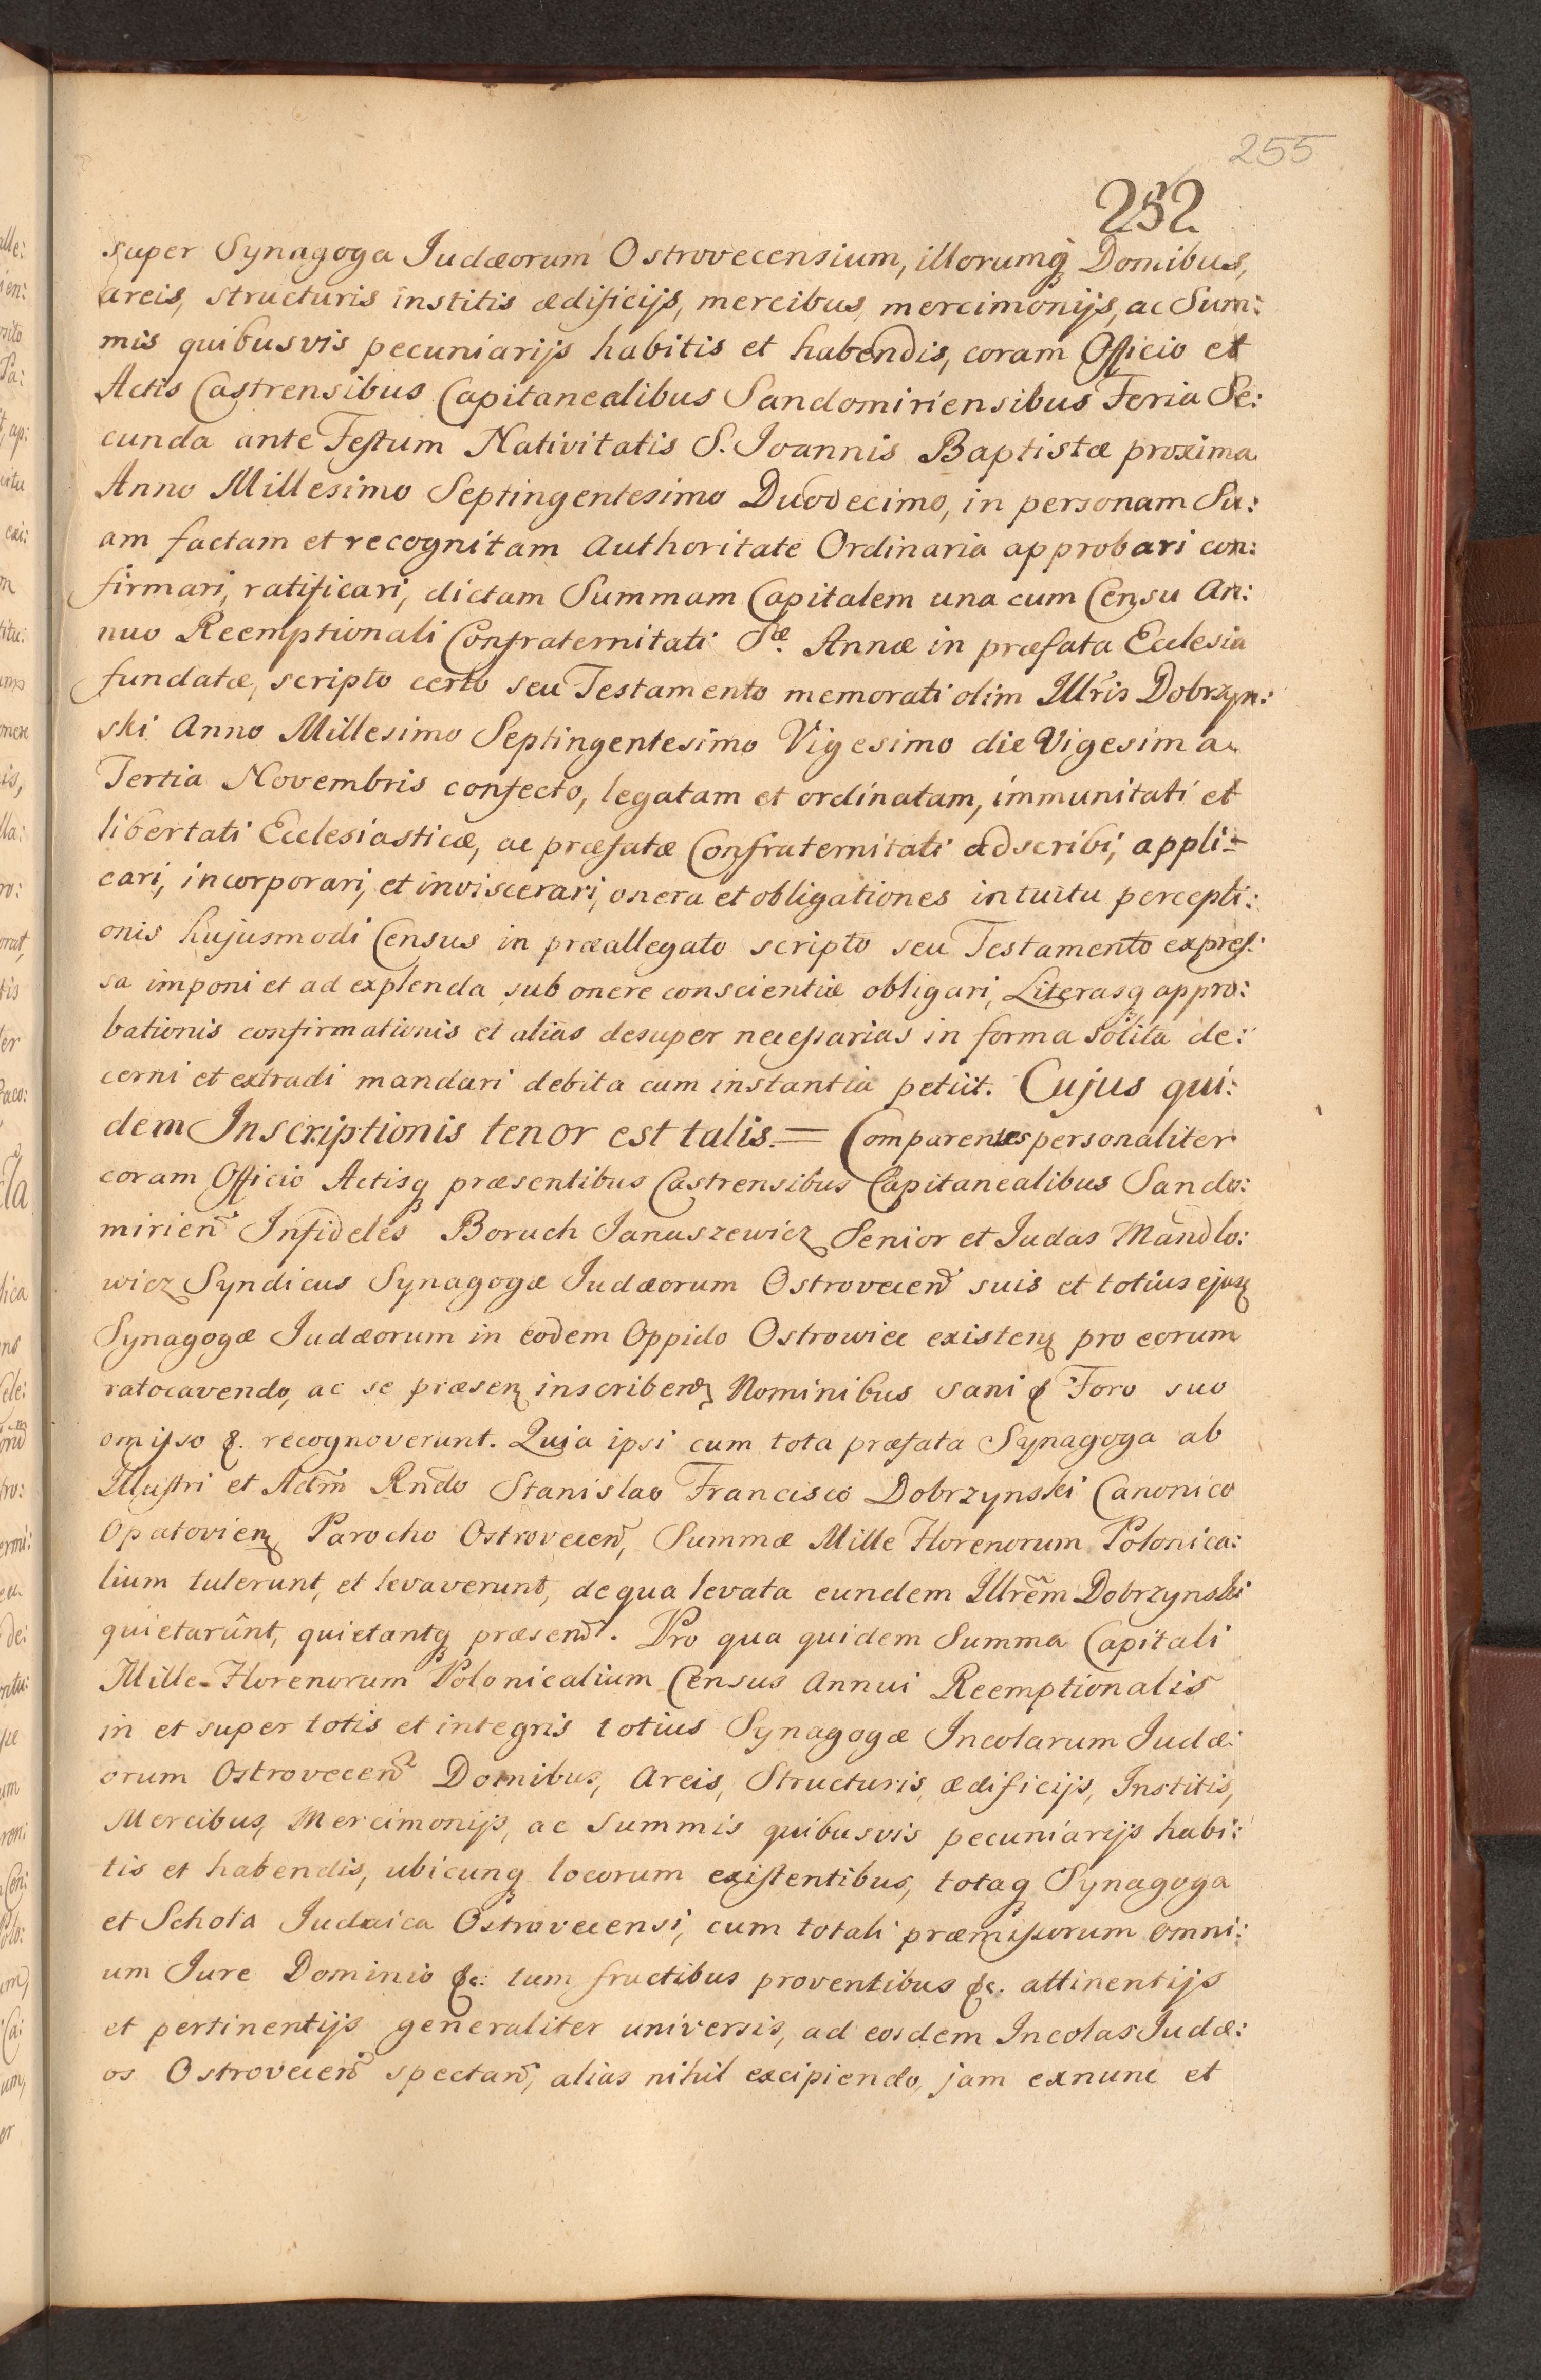 255
252
super Synagoga Judæorum Ostrovecensium, illorumq̷ Domibus,
areis, structuris institis ædificijs, mercibus mercimonijs, ac Sum:
mis quibusvis pecuniarijs habitis et habendis, coram Officio et
Actis Castrensibus Capitanealibus Sandomiriensibus Feria Se:
cunda ante Festum Nativitatis S. Joannis Baptistæ proxima
Anno Millesimo Septingentesimo Duodecimo, in personam Su:
am factam et recognitam Authoritate Ordinaria approbari con:
firmari, ratificari, dictam Summam Capitalem una cum Censu An:
nuo Reemptionali Confraternitati Sæ. Annæ in præfata Ecclesia
fundatæ, scripto certo seu Testamento memorati olim Illr̃is Dobrzyn:
ski Anno Millesimo Septingentesimo Vigesimo die Vigesima
Tertia Novembris confecto, legatam et ordinatam, immunitati et
libertati Ecclesiasticæ, ac præfatæ Confraternitati adscribi, appli=
cari, incorporari, et inviscerari, onera et obligationes intuitu percepti:
onis hujusmodi Census in præallegato scripto seu Testamento expres:
sa imponi et ad explenda sub onere conscientiæ obligari, Literasq̷ appro:
bationis confirmationis et alias desuper necessarias in forma solita de:
cerni et extradi mandari debita cum instantia petiit. Cujus qui:
dem Inscriptionis tenor est talis. = Comparentes personaliter
coram Officio Actisq̷ præsentibus Castrensibus Capitanealibus Sando:
mirien̄ Infideles Boruch Januszewicz Senior et Judas Mandlo:
wicz Syndicus Synagogæ Judæorum Ostrovecen̄ suis et totius ejusꝫ
Synagogæ Judæorum in eodem Oppido Ostrowiec existenꝫ pro eorum
ratocavendo, ac se præsenꝫ inscribendꝫ Nominibus sani & Foro suo
omisso &. recognoverunt. Quia ipsi cum tota præfata Synagoga ab
Illustri et Adm̃ Rn̄do Stanislao Francisco Dobrzynski Canonico
Opatovienꝫ Parocho Ostrovecen̄, Summæ Mille Florenorum Polonica:
lium tulerunt, et levaverunt, de qua levata eundem Illrẽm Dobrzynski
quietarûnt, quietantq̷ præsen̄. Pro qua quidem Summa Capitali
Mille-Florenorum Polonicalium Census Annui Reemptionalis
in et super totis et integris totius Synagogæ Incolarum Judæ:
orum Ostrovecen̄ Domibus, Areis, Structuris, ædificijs, Institis,
Mercibus, Mercimonijs, ac Summis quibusvis pecuniarijs habi:
tis et habendis, ubicunq̷ locorum existentibus, totaq̷ Synagoga
et Schola Judaica Ostrovecensi, cum totali præmissorum omni:
um Jure Dominio &c: tum fructibus proventibus &c. attinentijs
et pertinentijs generaliter universis, ad eosdem Incolas Judæ:
os Ostrovecen̄ spectan̄, alias nihil excipiendo, jam exnunc et